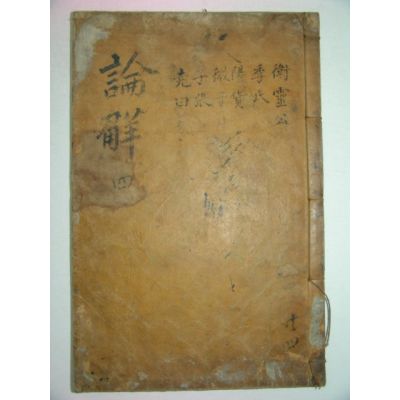 衛靈公
季氏
陽貨
微子
子張
堯曰
論解
四